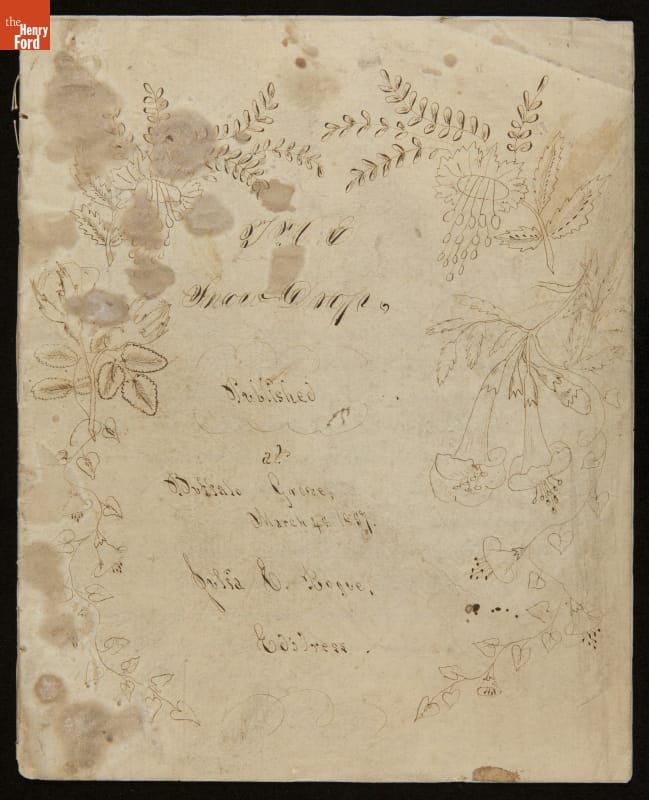 the
Henry
Ford
THE
Snow-Drop.
Published
at
Buffalo Grove,
March 4th
Julia E.
Editress.